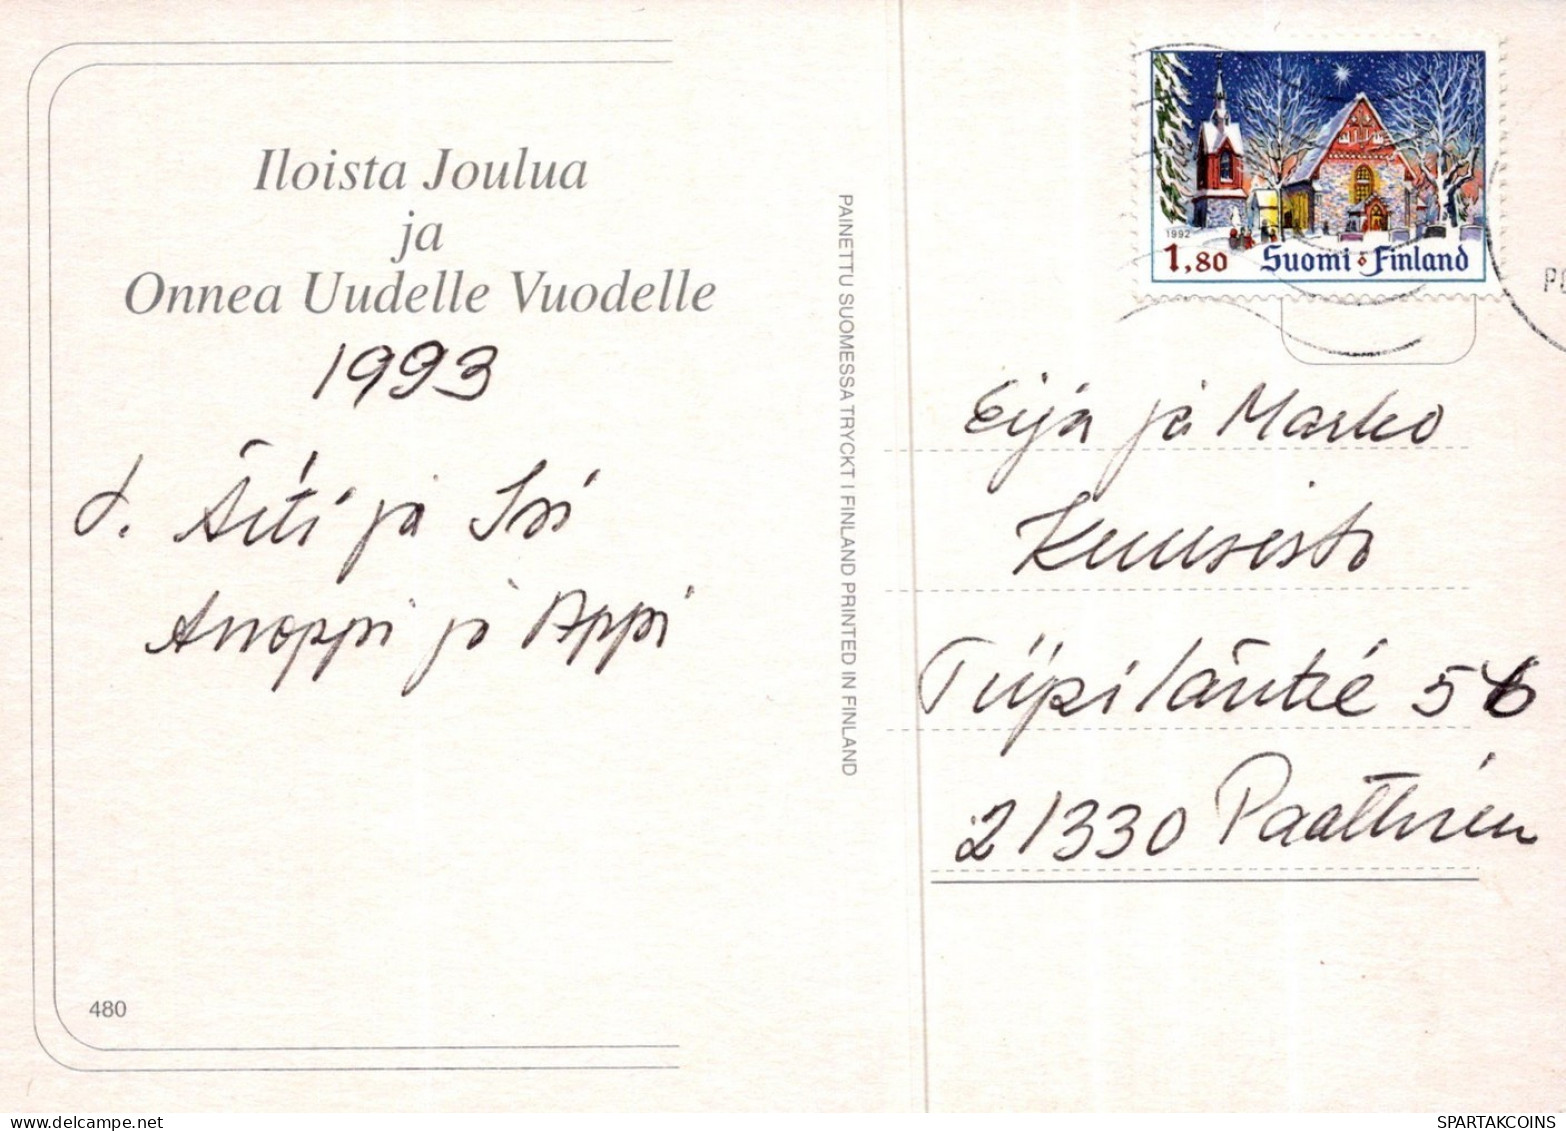 Iloista Joulua
ja
Onnea Uudelle Vuodelle
1993
Äiti ja Isi
Anoppi ja Appi
480
PAINETTU SUOMESSA TRYCKT I FINLAND PRINTED IN FINLAND
1992
1,80 Suomi Finland
Eija ja Marko
Kuusisto
Tiipiläntie 56
21330 Paattinen
SPARTAKCOINS